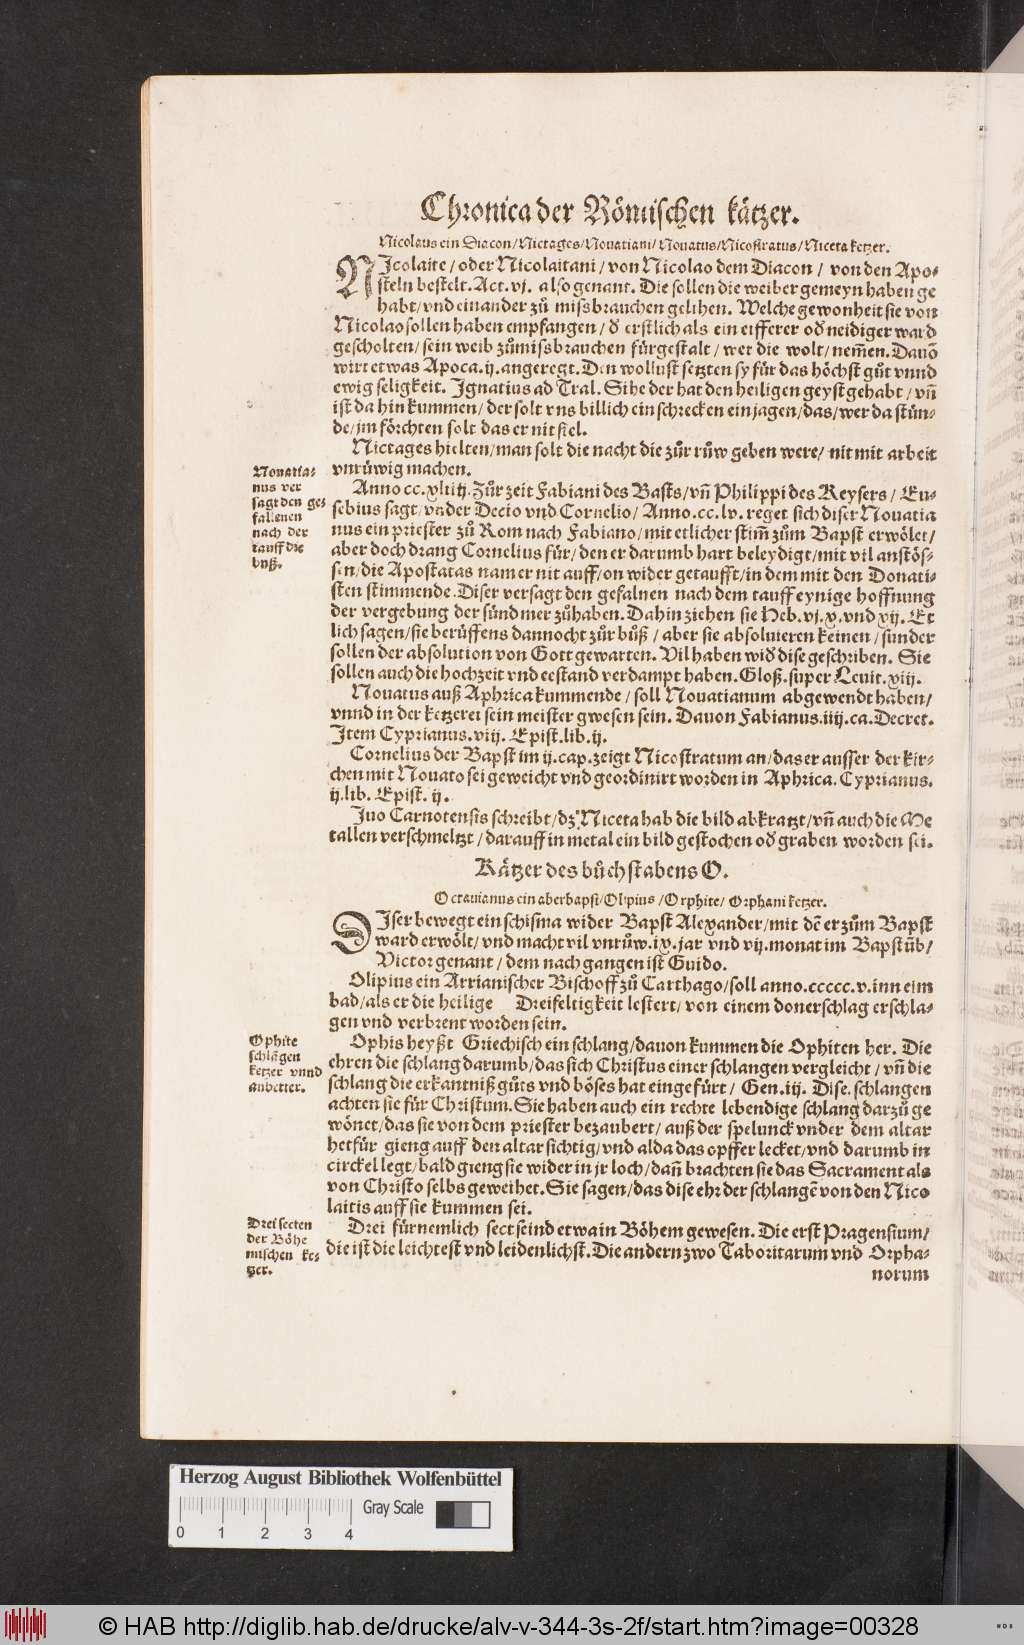 Chronica der Römischen kätzer.
Nicolaus ein Diacon/Nictages/Nouatiani/Nouatus/Nicostratus/Niceta ketzer.
NIcolaite/oder Nicolaitani/von Nicolao dem Diacon/ von den Apo-
steln bestelt. Act.vj. also genant. Die sollen die weiber gemeyn haben ge
habt/vnd einander zů missbrauchen gelihen. Welche gewonheit sie von
Nicolao sollen haben empfangen/ d̕ erstlich als ein eifferer od̕ neidiger ward
gescholten/sein weib zůmissbrauchen fürgestalt/wer die wolt/nem̃en. Dauõ
wirt etwas Apoca.ij.angeregt. Den wollust setzten sy für das höchst gůt vnnd
ewig seligkeit. Ignatius ad Tral. Sihe der hat den heiligen geyst gehabt/vñ
ist da hin kummen/der solt vns billich ein schrecken ein jagen/das/wer da stün-
de/jm förchten solt das er nit fiel.
Nictages hielten/man solt die nacht die zůr růw geben were/ nit mit arbeit
vnrüwig machen.
Nouatia-
nus ver
sagt den ge-
fallenen
nach der
tauff die
bůß.
Anno cc.xliiij. Zůr zeit Fabiani des Basts/vñ Philippi des Keysers/ Eu-
sebius sagt/vnder Decio vnd Cornelio/Anno.cc.lv. reget sich diser Nouatia
nus ein priester zů Rom nach Fabiano/mit etlicher stim̃ zům Bapst erwölet/
aber doch drang Cornelius für/den er darumb hart beleydigt/mit vil anstös-
sen/die Apostatas nam er nit auff/on wider getaufft/in dem mit den Donati-
sten stimmende. Diser versagt den gefalnen nach dem tauff eynige hoffnung
der vergebung der sünd mer zůhaben. Dahin ziehen sie Heb.vj.x.vnd xij. Et
lich sagen/sie berůffens dannocht zůr bůß/aber sie absoluieren keinen/sunder
sollen der absolution von Gott gewarten. Vil haben wid̕ dise geschriben. Sie
sollen auch die hochzeit vnd eestand verdampt haben. Gloß.super Leuit.xiij.
Nouatus auß Aphrica kummende/soll Nouatianum abgewendt haben/
vnnd in der ketzerei sein meister gwesen sein. Dauon Fabianus.iiij.ca.Decret.
Item Cyprianus.viij. Epist.lib.ij.
Cornelius der Bapst im ij.cap.zeigt Nicostratum an/das er ausser der kir-
chen mit Nouato sei geweicht vnd geordinirt worden in Aphrica. Cyprianus.
ij.lib. Epist. ij.
Iuo Carnotensis schreibt/dz Niceta hab die bild abkratzt/vñ auch die Me
tallen verschmeltzt/darauff in metal ein bild gestochen od̕ graben worden sei.
Kätzer des bůchstabens O.
Octauianus ein aberbapst/Olipius/Orphite/Orphani ketzer.
DIser bewegt ein schisma wider Bapst Alexander/mit dẽ er zům Bapst
ward erwölt/vnd macht vil vnrůw.ix.jar vnd vij.monat im Bapstůb/
Victor genant/dem nach gangen ist Guido.
Olipius ein Arrianischer Bischoff zů Carthago/soll anno.ccccc.v.inn eim
bad/als er die heilige Dreifeltigkeit lestert/von einem donerschlag erschla-
gen vnd verbrent worden sein.
Ophite
schlãgen
ketzer vnnd
anbetter.
Ophis heyßt Griechisch ein schlang/dauon kummen die Ophiten her. Die
ehren die schlang darumb/das sich Christus einer schlangen vergleicht/vñ die
schlang die erkantniß gůts vnd böses hat eingefürt/ Gen.iij. Dise schlangen
achten sie für Christum. Sie haben auch ein rechte lebendige schlang darzů ge
wönet/das sie von dem priester bezaubert/auß der spelunck vnder dem altar
herfür gieng auff den altar sichtig/vnd alda das opffer lecket/vnd darumb in
circkel legt/bald gieng sie wider in jr loch/dañ brachten sie das Sacrament als
von Christo selbs geweihet. Sie sagen/das dise ehr der schlangẽ von den Nico
laitis auff sie kummen sei.
Drei secten
der Böhe
mischen ke-
tzer.
Drei fürnemlich sect seind etwa in Böhem gewesen. Die erst Pragensium/
die ist die leichtest vnd leidenlichst. Die andern zwo Taboritarum vnd Orpha-
norum
Herzog August Bibliothek Wolfenbüttel
Gray Scale
0 1 2 3 4
© HAB http://diglib.hab.de/drucke/alv-v-344-3s-2f/start.htm?image=00328